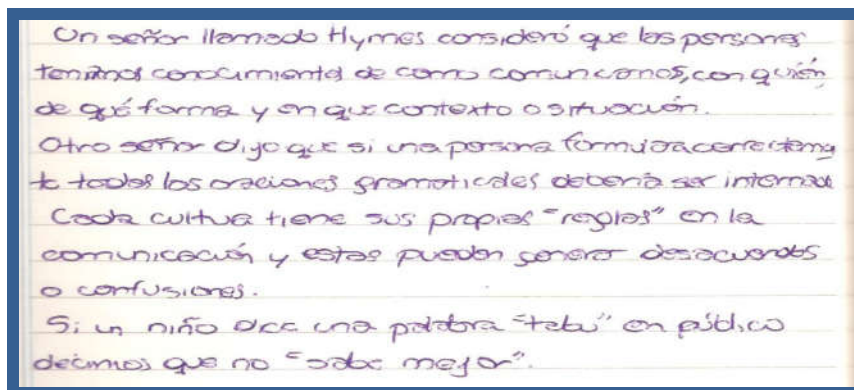 Un señor llamado Hymes consideró que las personas
teníamos conocimientos de como comunicarnos, con quién
de qué forma y en que contexto o situación.
Otro señor dijo que si una persona formulara correctamen
te todas las oraciones gramaticales debería ser internada
Cada cultura tiene sus propias "reglas" en la
comunicación y estas pueden generar desacuerdos
o confusiones.
Si un niño dice una palabra "tabu" en público
decimos que no "sabe mejor".